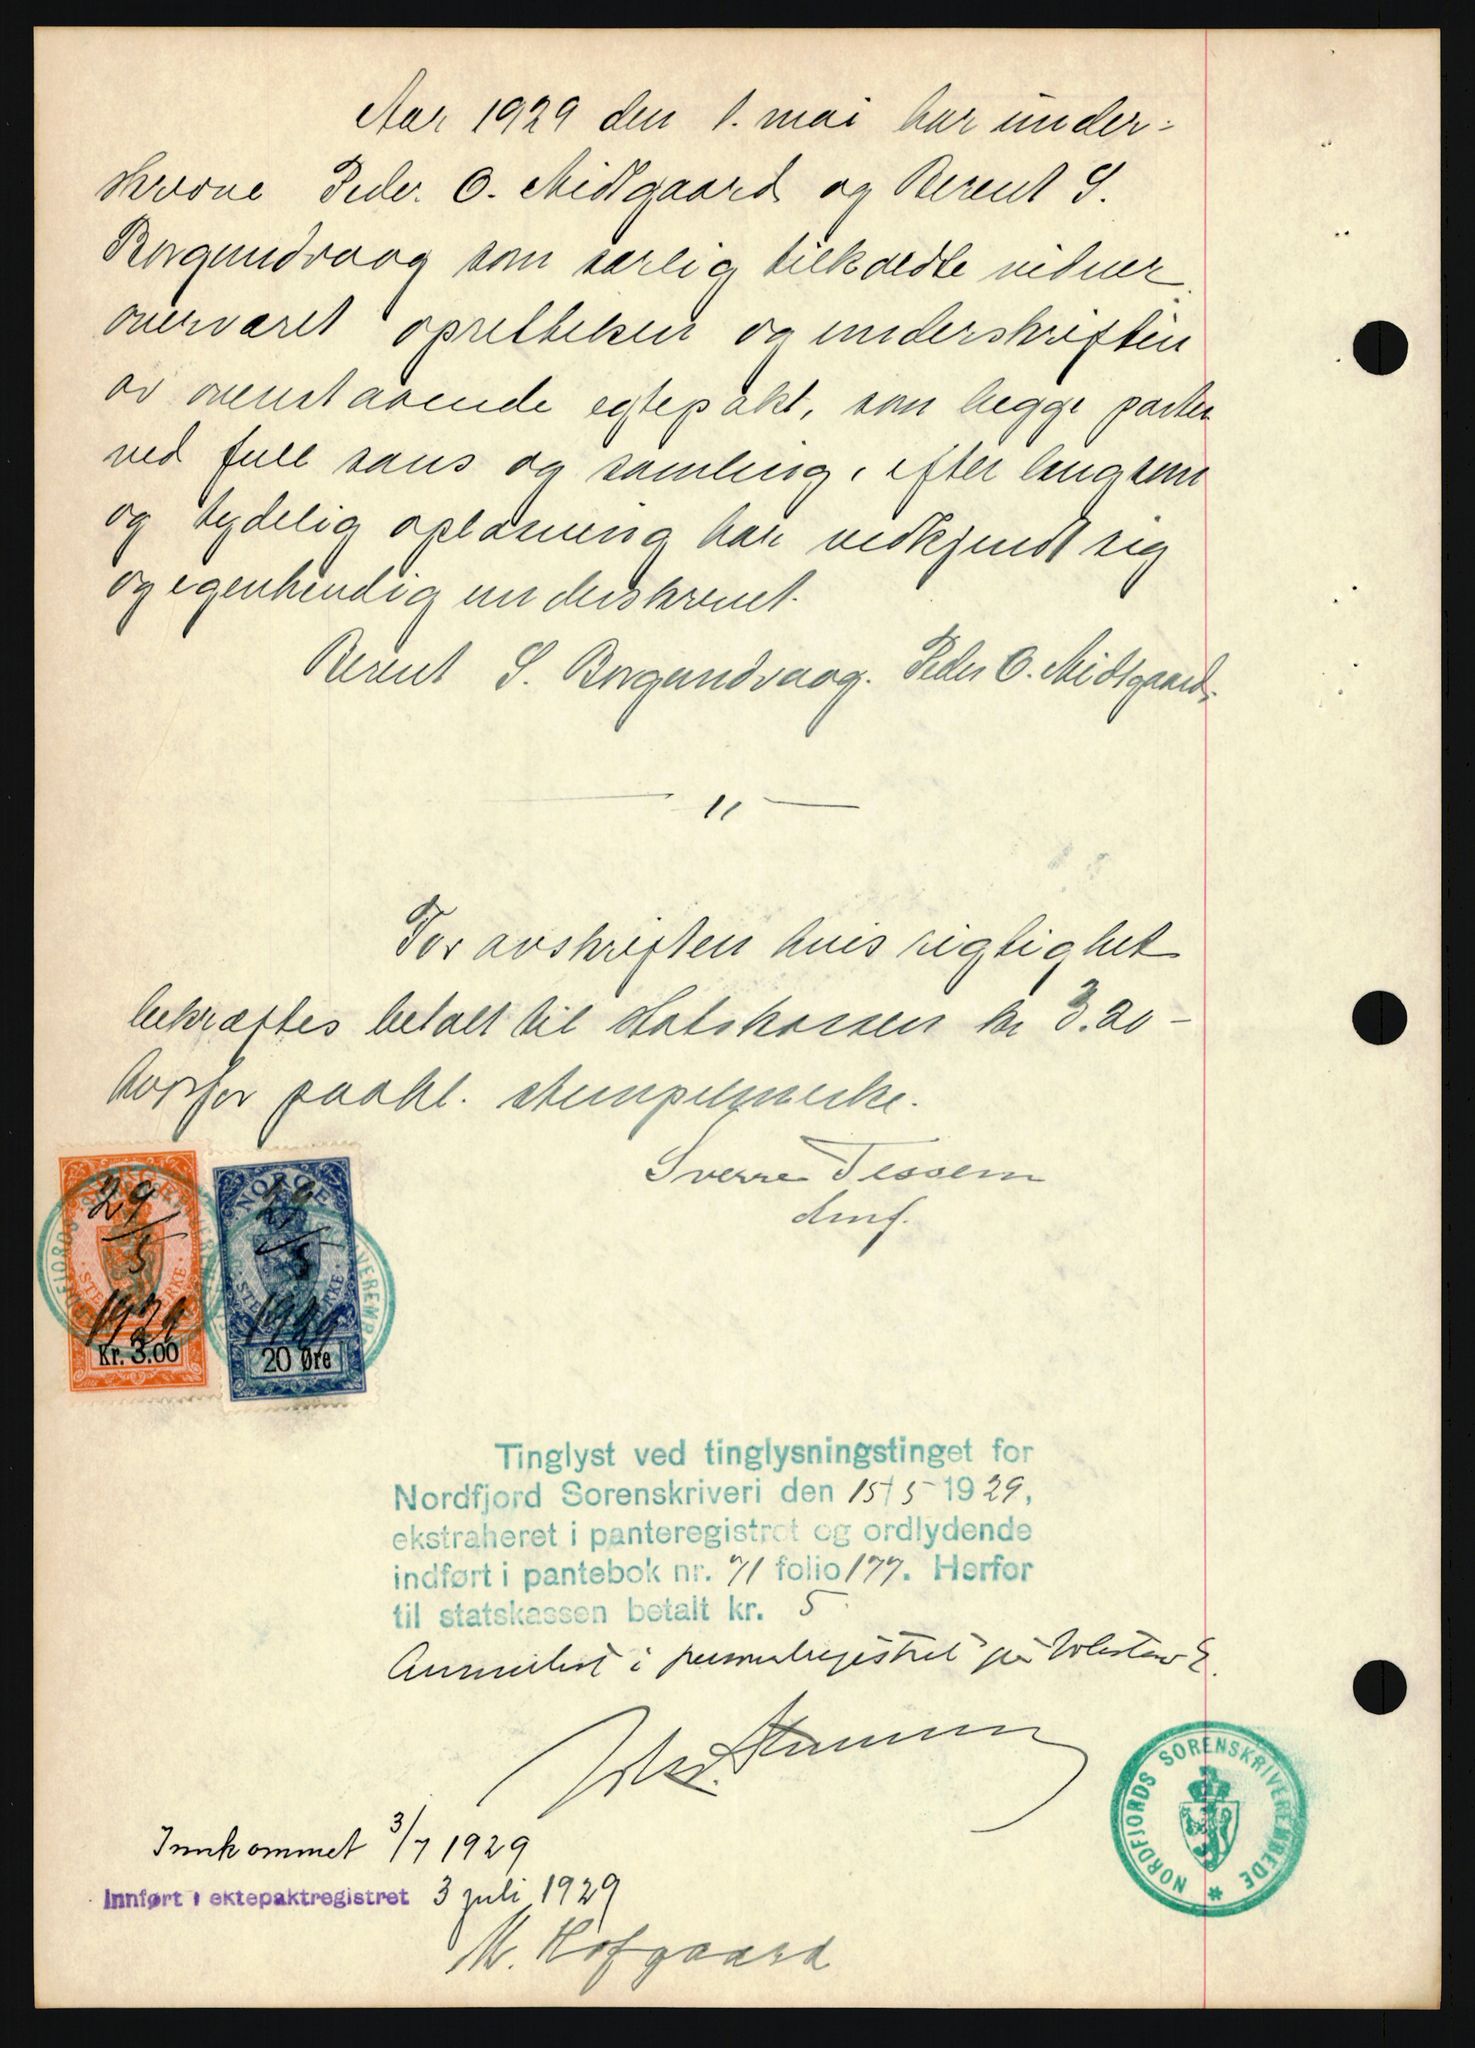 Aar 1929 den 1. mai har under-
skrevne Peder O. Midtgaard og Berent S.
Borgundvaag som særlig tilkaldte vidner
overværet oprettelsen og underskriften
av ovenstaaende egtepakt, som begge parter
ved full sans og samling, efter langsom
og tydelig oplæsning har vedkjendt sig
og egenhendig underskrevet.
Berent S. Borgundvaag. Peder O. Midtgaard.
— " —
For avskriften hvis rigtighet
bekræftes betalt til statskassen kr 3.20 -
hvorfor paakl. stempelmerke.
Sverre Tessem
dmf.
29/5
1929
Kr. 3.00
NORGE
29/5
1929
STEMPELMERKE
20 Øre
Tinglyst ved tinglysningstinget for
Nordfjord Sorenskriveri den 15/5 1929,
ekstraheret i panteregistret og ordlydende
indført i pantebok nr. 71 folio 177. Herfor
til statskassen betalt kr. 5
Anmerket i personalregistret på
Innkommet 3/7 1929
Innført i ektepaktregistret 3 juli 1929
M. Hofgaard
NORDFJORDS SORENSKRIVEREMBEDE